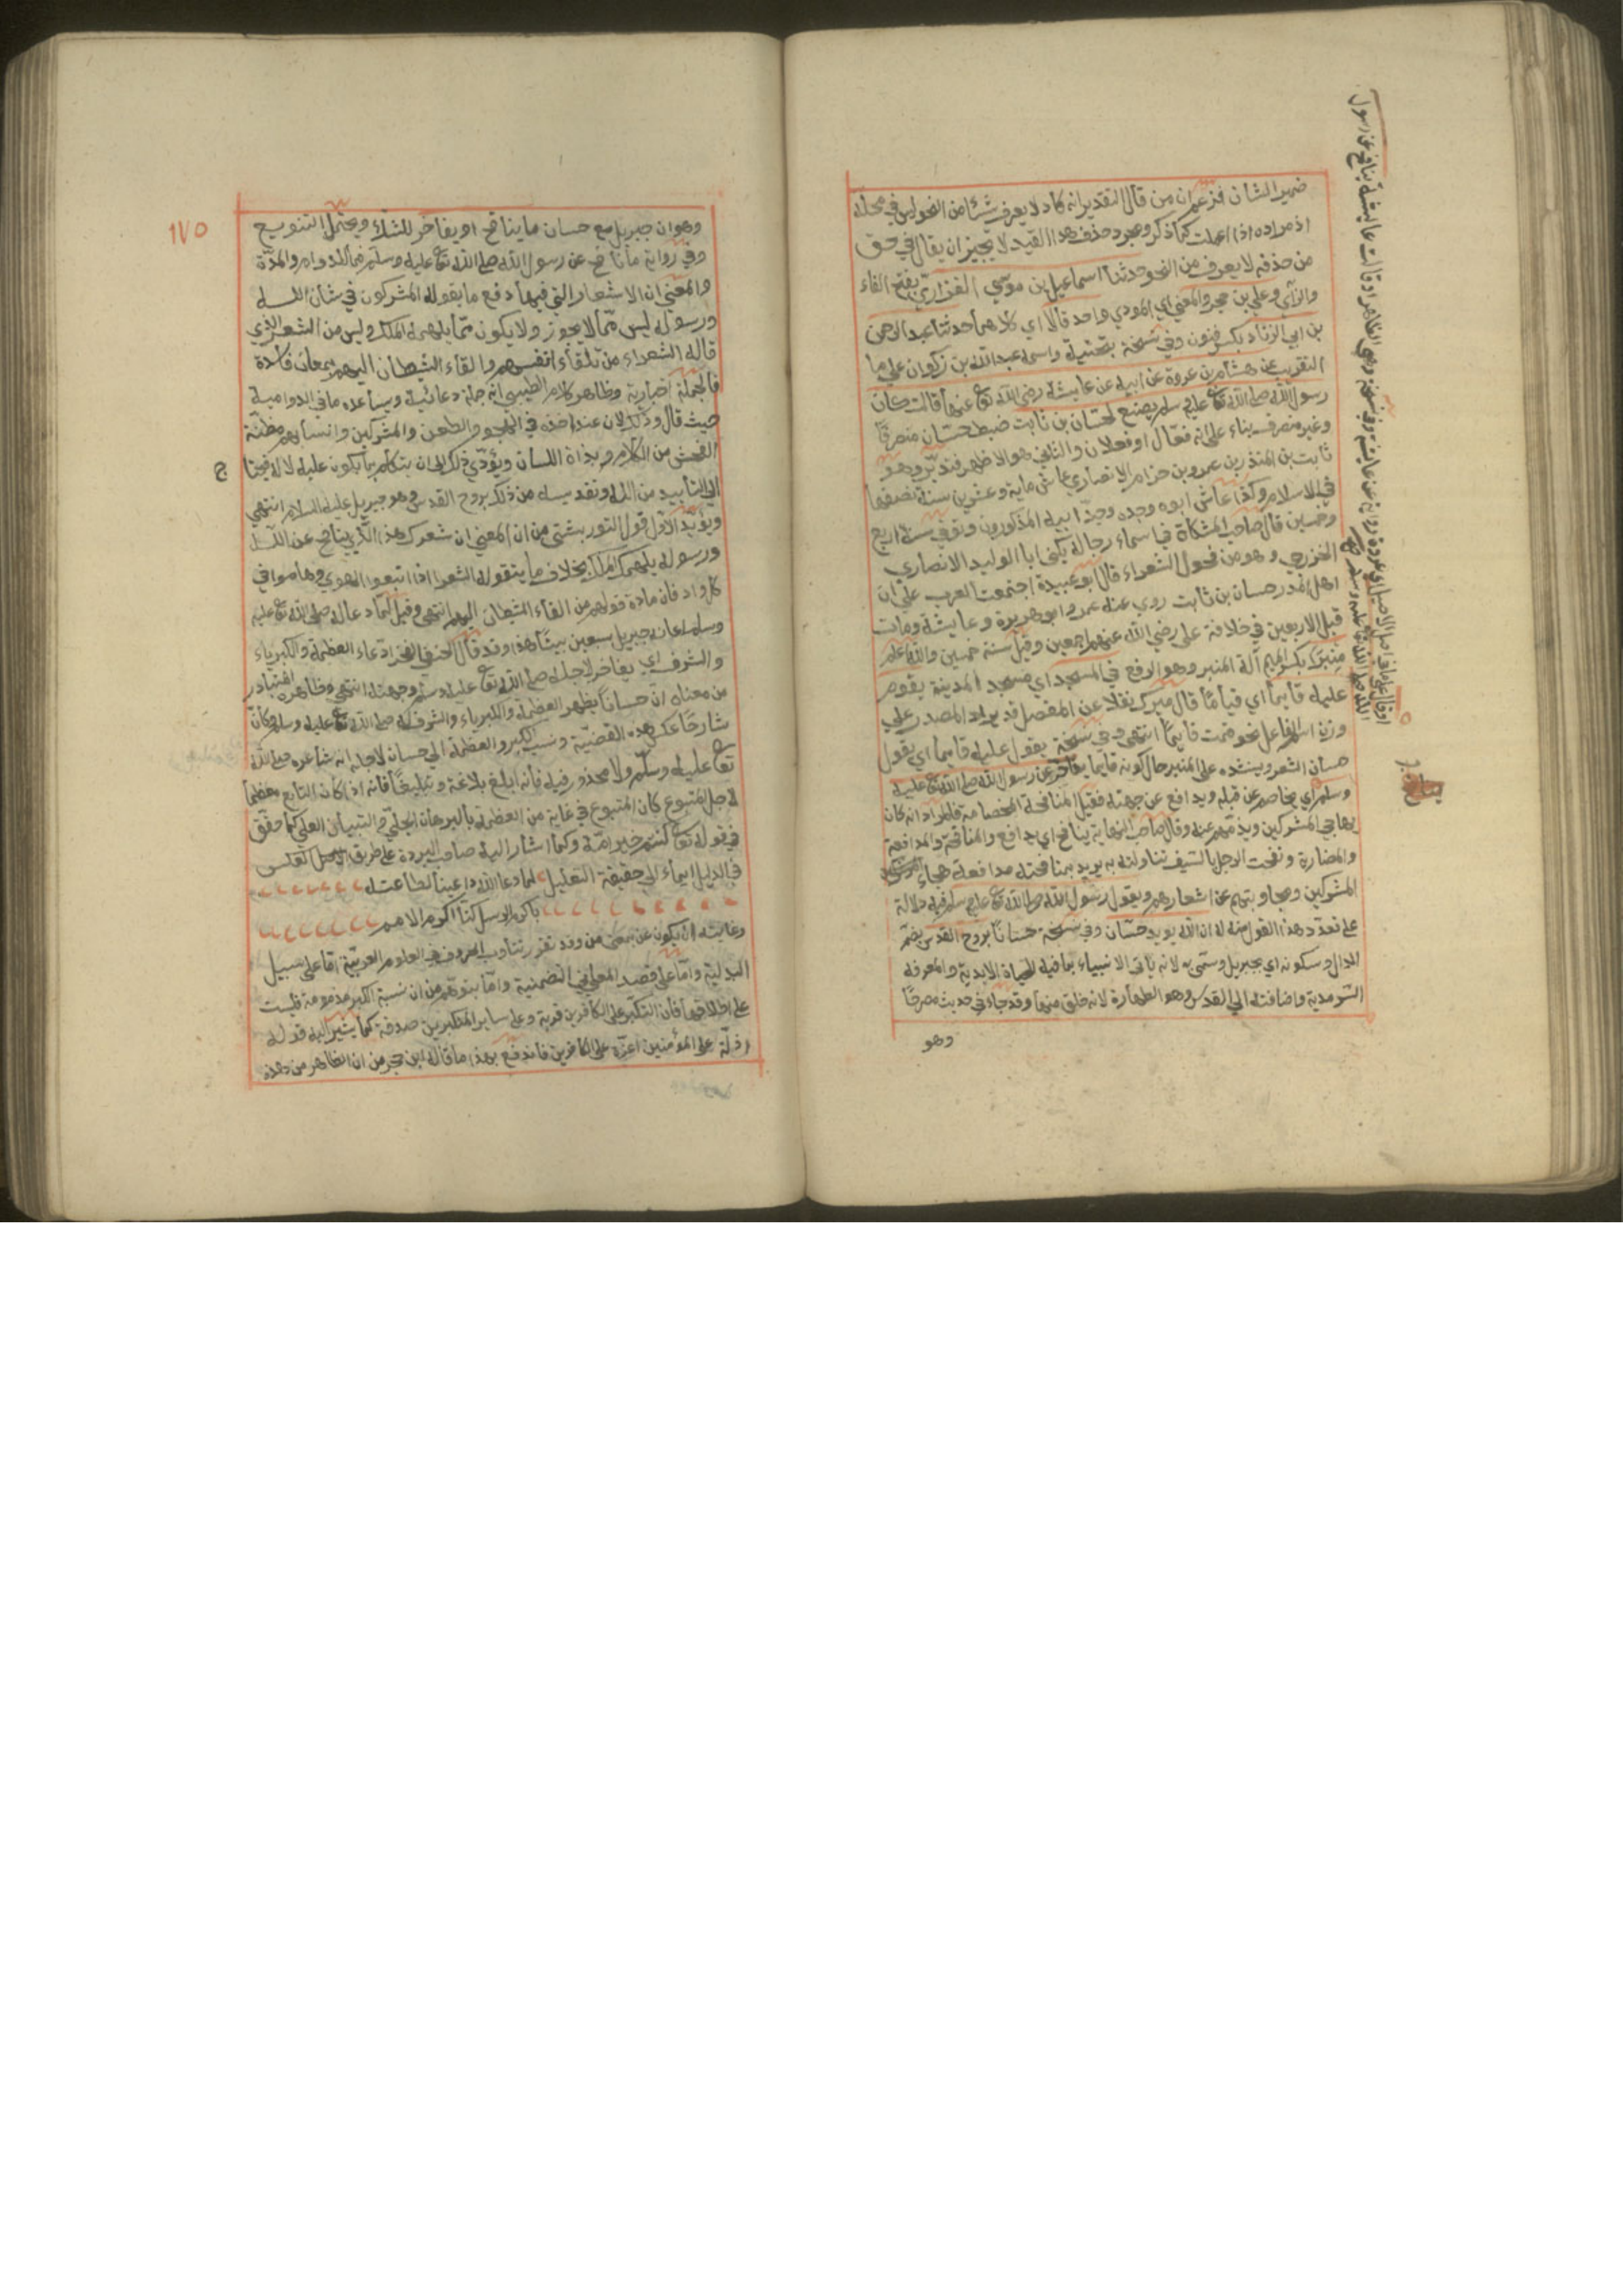 ضمير الشان فزعم ان من قال التقدير انه كاد لا يعرف شيئا من النحو ليس في محله
اذ مراده اذا اعملت كما ذكر ومجرد حذف هذا القيد لا يجيز ان يقال في حق
من حذفه لا يعرف من النحو حدثنا اسماعيل بن موسي الفزاري بفتح الفاء
والزاي وعلي بن حجر والمعني اي المودي واحد قالا اي كلاهما حدثنا عبد الرحمن
بن ابي الزناد بكسر فنون وفي نسخة بتحتية واسمه عبد الله بن زكوان علي ما
التقريب عن هشام بن عروة عن ابيه عن عايشة رضي الله تع عنها قالت كان
رسول الله صلي الله تع عليه وسلم يضع لحسان بن ثابت ضبط حسان منصرفا
وغير منصرف بناء علي انه فعال او فعلان والثاني هو الاظهر فتدبر وهو
ثابت بن المنذر بن عمرو بن حزام الانصاري عاش ماية وعشرين سنة نصفها
في الاسلام وكذا عاش ابوه وجده وجد ابيه المذكورون وتوفي سنة اربع
وخمسين قال صاحب المشكاة في اسماء رجاله يكني ابا الوليد الانصاري
الخزرجي وهو من فحول الشعراء قال ابو عبيدة اجتمعت العرب علي ان
اهل المدر حسان بن ثابت روي عنه عمر وابو هريرة وعايشة ومات
قبل الاربعين في خلافة علي رضي الله عنهم اجمعين وقيل سنة خمسين والله اعلم
منبرا بكسر الميم آلة المنبر وهو الرفع في المسجد اي مسجد المدينة يقوم
عليه قايما اي قياما قال ميرك نقلا عن المفصل قد يرد المصدر علي
وزن اسم الفاعل نحو قمت قايما انتهي وفي نسخة يقول عليه قايما اي يقول
حسان الشعر وينشده علي المنبر حال كونه قايما يفاخر عن رسول الله صلي الله تع عليه
وسلم اي يخاصم عن قبله ويدافع عن جهته فقيل المنافحة المخاصمة فالمراد انه كان
يهاجي المشركين ويذمهم عنه وقال صاحب النهاية ينافح اي يدافع والمنافحة والمدافعة
والمضاربة ونفحت الرجل بالسيف تناولته به يريد بمنافحته مدافعة هجاء
المشركين ومجاوبتهم عن اشعارهم ويقول رسول الله صلي الله تع عليه وسلم فيه دلالة
علي تعدد هذا القول منه له ان الله يويد حسان وفي نسخة حسانا بروح القدس بضم
الدال وسكونه اي بجبريل وسمي به لانه ياتي الانبياء بما فيه الحياة الابدية والمعرفة
السرمدية واضافته الي القدس وهو الطهارة لانه خلق منها وقد جاء في حديث مصرحا
وهو
١٧٥
وهو ان جبريل مع حسان ما ينافح او يفاخر للشك ويحتمل التنويع
وفي رواية ما نافح عن رسول الله صلي الله تع عليه وسلم فما للدوام والمدة
والمعني ان الاشعار التي فيها دفع ما يقوله المشركون في شان الله
ورسوله ليس مما لا يجوز ولا يكون مما يلهمه الملك وليس من الشعر الذي
قاله الشعراء من تلقاء انفسهم والقاء الشيطان اليهم بمعان فاسدة
فالجملة اخبارية وظاهر كلام الطيبي انه جملة دعائية ويساعده ما في الدوامية
حيث قال وذلك لان عند اخذه في الهجو والطعن والمشركين وانسابهم مظنة
الفحش من الكلام وبذاة اللسان ويؤدي ذلك الي ان يتكلم بما يكون عليه لا له فيحتا
ج
الي التاييد من الله وتقديسه من ذلك بروح القدس وهو جبريل عليه السلام انتهي
ويؤيد الاول قول التوربشتي من ان المعني ان شعرك هذا الذي ينافح عن الله
ورسوله يلهمك الملك بخلاف ما يتقوله الشعرا اذا اتبعوا الهوي وهاموا في
كل واد فان مادة قولهم من القاء الشيطان اليهم انتهي وقيل لما دعا له صلي الله تع عليه
وسلم اعانه جبريل بسبعين بيتا هذا وقد قال الحنفي الفخر ادعاء العظمة والكبرياء
والشرف اي يفاخر لاجله صلي الله تع عليه وسلم وجهته انتهي وظاهره المتبادر
من معناه ان حسانا يظهر العظمة والكبرياء والشرف له صلي الله تع عليه وسلم وكان
شارحا عكس هذه القضية ونسب الكبر والعظمة الي حسان لاجل انه شاعره صلي الله
تع عليه وسلم ولا محذور فيه فانه ابلغ بلاغة وتبليغا فانه اذا كان التابع معظما
لاجل المتبوع كان المتبوع في غاية من العظمة بالبرهان الجلي والتبيان العلي كما حقق
في قوله تع كنتم خير امة وكما اشار اليه صاحب البردة علي طريق
في الدليل ايماء الي حقيقة التعليل لما دعا الله داعينا لطاعته
باكرم الرسل كنا اكرم الامم
وغايته ان يكون عن بمعني من وقد تقرر تناوب الحروف في العلوم العربية اما علي سبيل
البدلية واما علي قصد المعاني التضمنية واما بتوهم من ان نسبة الكبر مذمومة فليست
علي اطلاقها فان التكبر علي الكافرين قربة وعلي ساير المتكبرين صدقة كما يشير اليه قوله
اذلة علي المؤمنين اعزة علي الكافرين فاندفع بهذا ما قاله ابن حجر من ان الظاهر من هذه